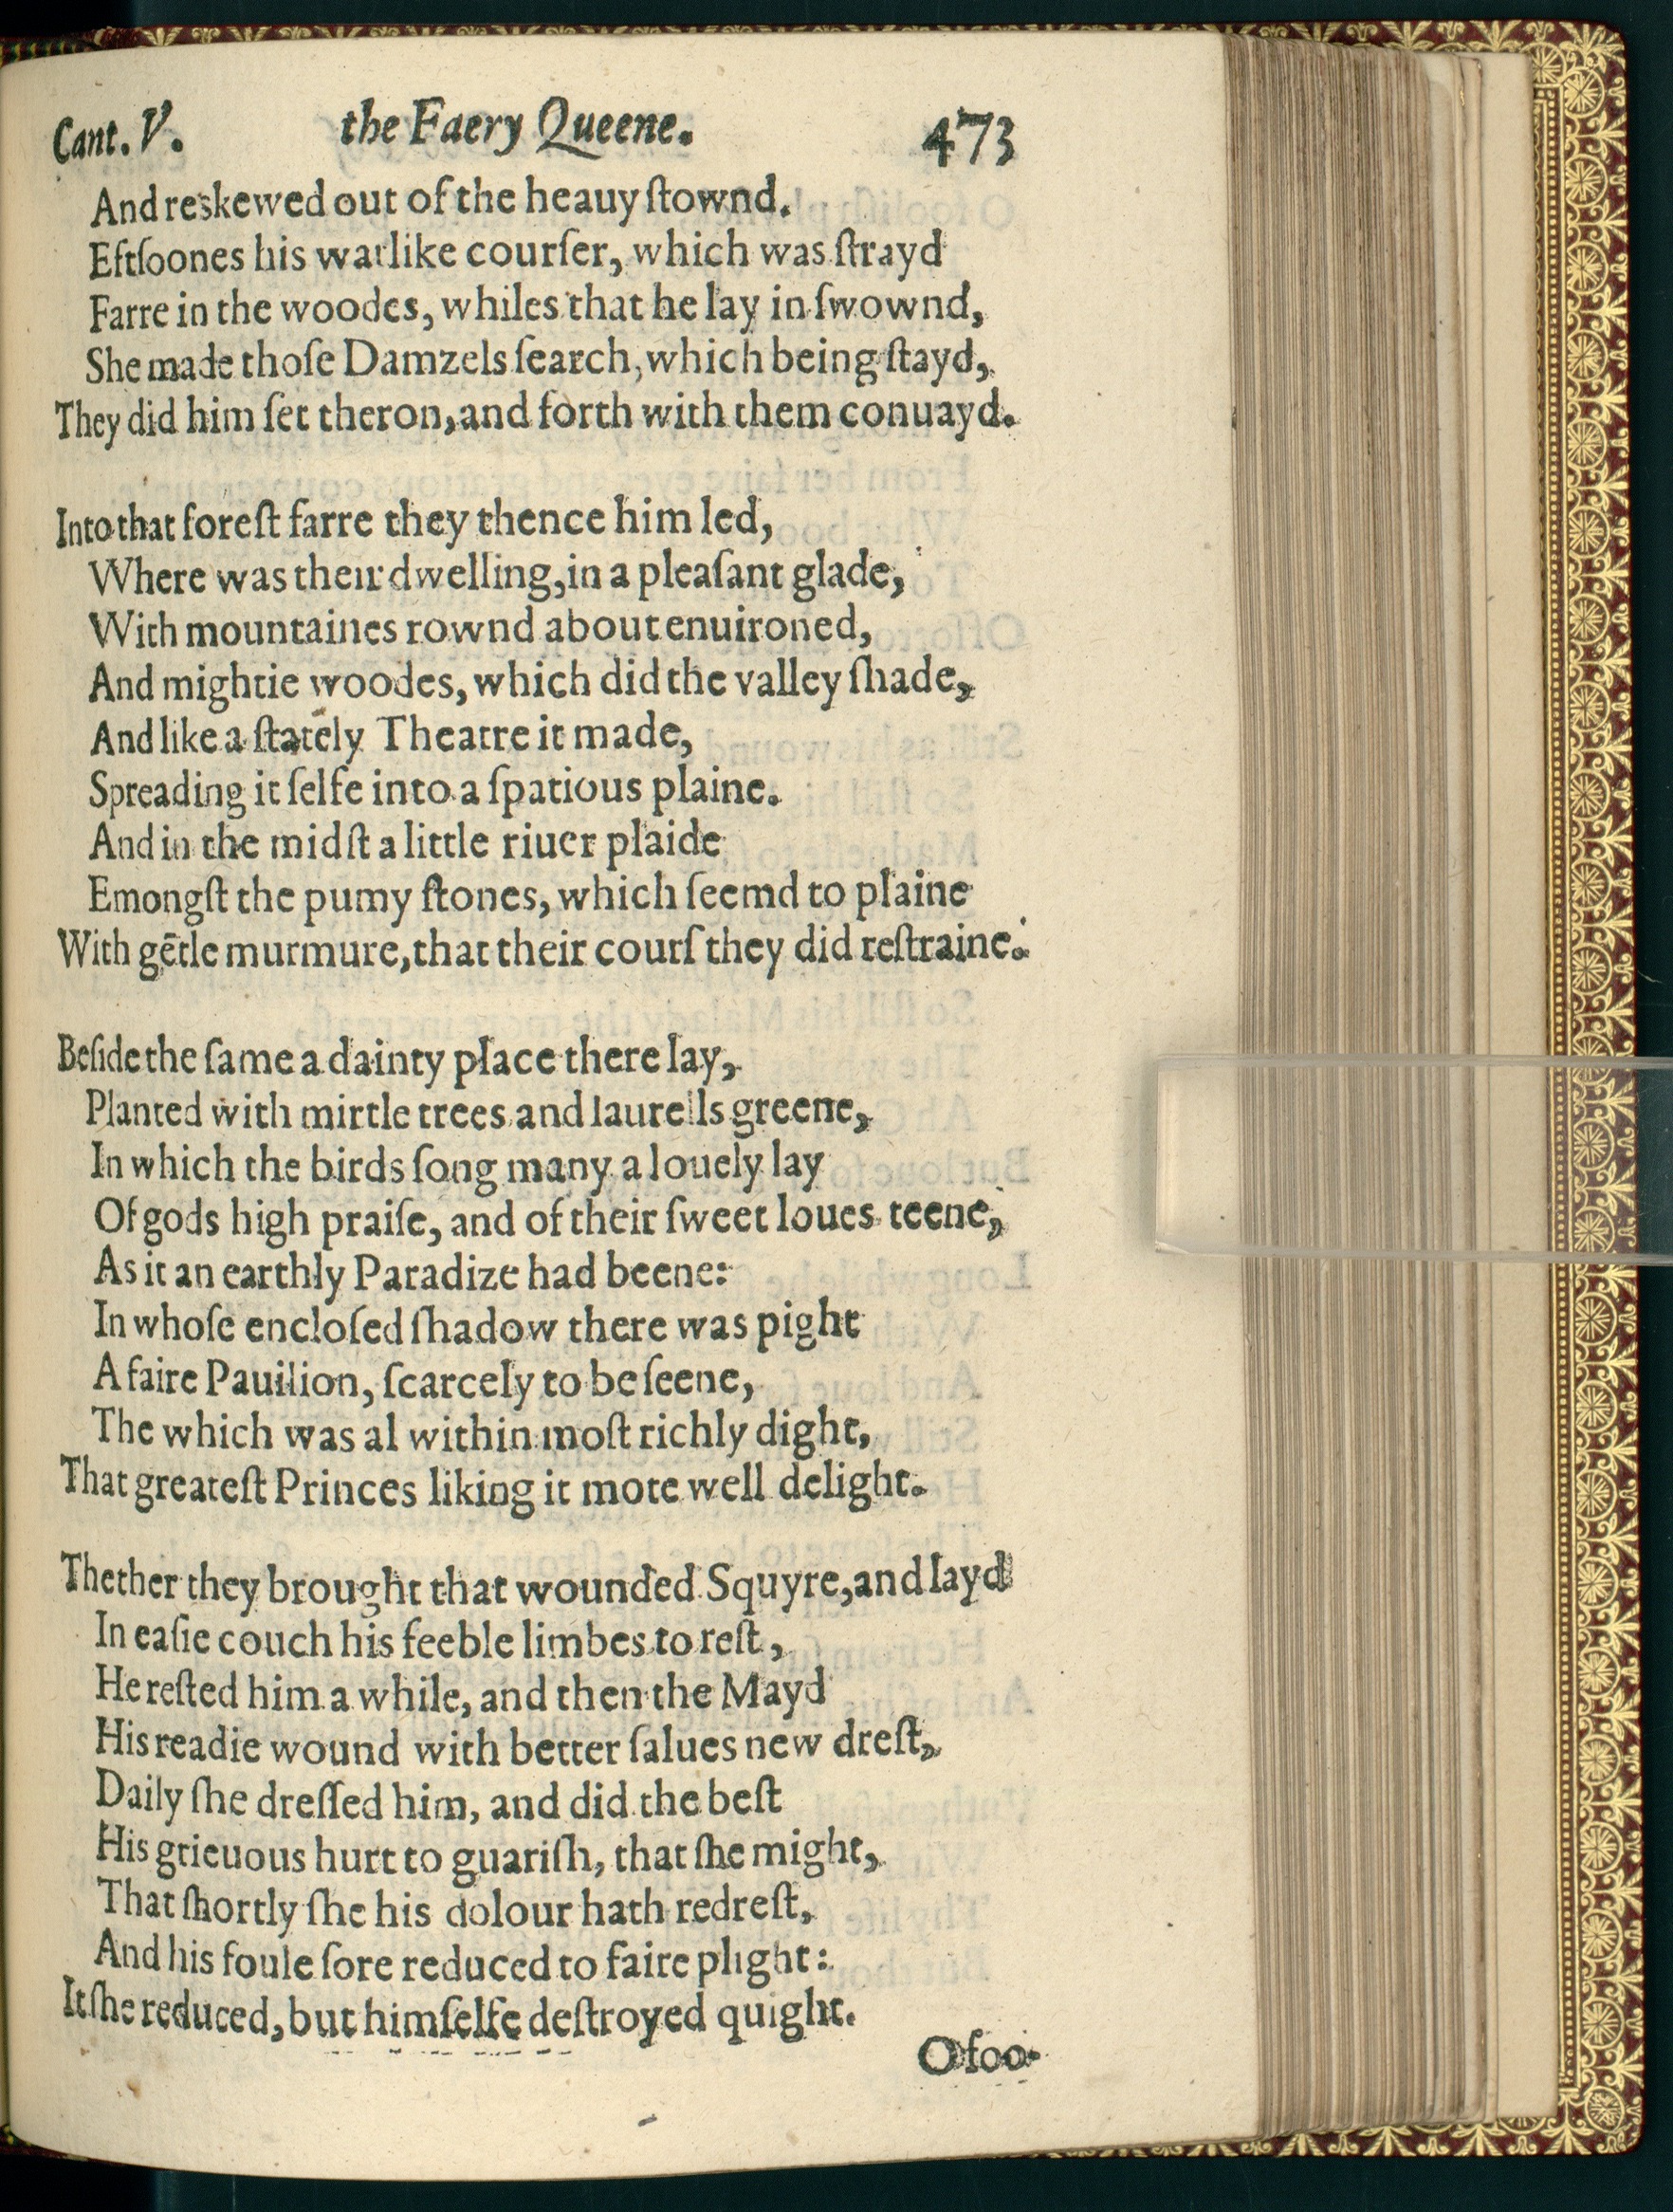 Cant. V. the Faery Queene. 473
And reskewed out of the heauy ſtownd.
Eftſoones his warlike courſer, which was ſtrayd
Farre in the woodes, whiles that he lay in ſwownd,
She made thoſe Damzels ſearch, which being ſtayd,
They did him ſet theron, and forth with them conuayd.
Into that foreſt farre they thence him led,
Where was their dwelling, in a pleaſant glade,
With mountaines rownd about enuironed,
And mightie woodes, which did the valley ſhade,
And like a ſtately Theatre it made,
Spreading it ſelfe into a ſpatious plaine.
And in the midſt a little riuer plaide
Emongſt the pumy ſtones, which ſeemd to plaine
With gētle murmure, that their courſ they did reſtraine.
Beſide the ſame a dainty place there lay,
Planted with mirtle trees and laurells greene,
In which the birds ſong many a louely lay
Of gods high praiſe, and of their ſweet loues teene,
As it an earthly Paradize had beene:
In whoſe encloſed ſhadow there was pight
A faire Pauilion, ſcarcely to be ſeene,
The which was al within moſt richly dight,
That greateſt Princes liking it mote well delight.
Thether they brought that wounded Squyre, and layd
In eaſie couch his feeble limbes to reſt,
He reſted him a while, and then the Mayd
His readie wound with better ſalues new dreſt,
Daily ſhe dreſſed him, and did the beſt
His grieuous hurt to guariſh, that ſhe might,
That ſhortly ſhe his dolour hath redreſt,
And his foule ſore reduced to faire plight:
It ſhe reduced, but himſelfe deſtroyed quight.
O foo-